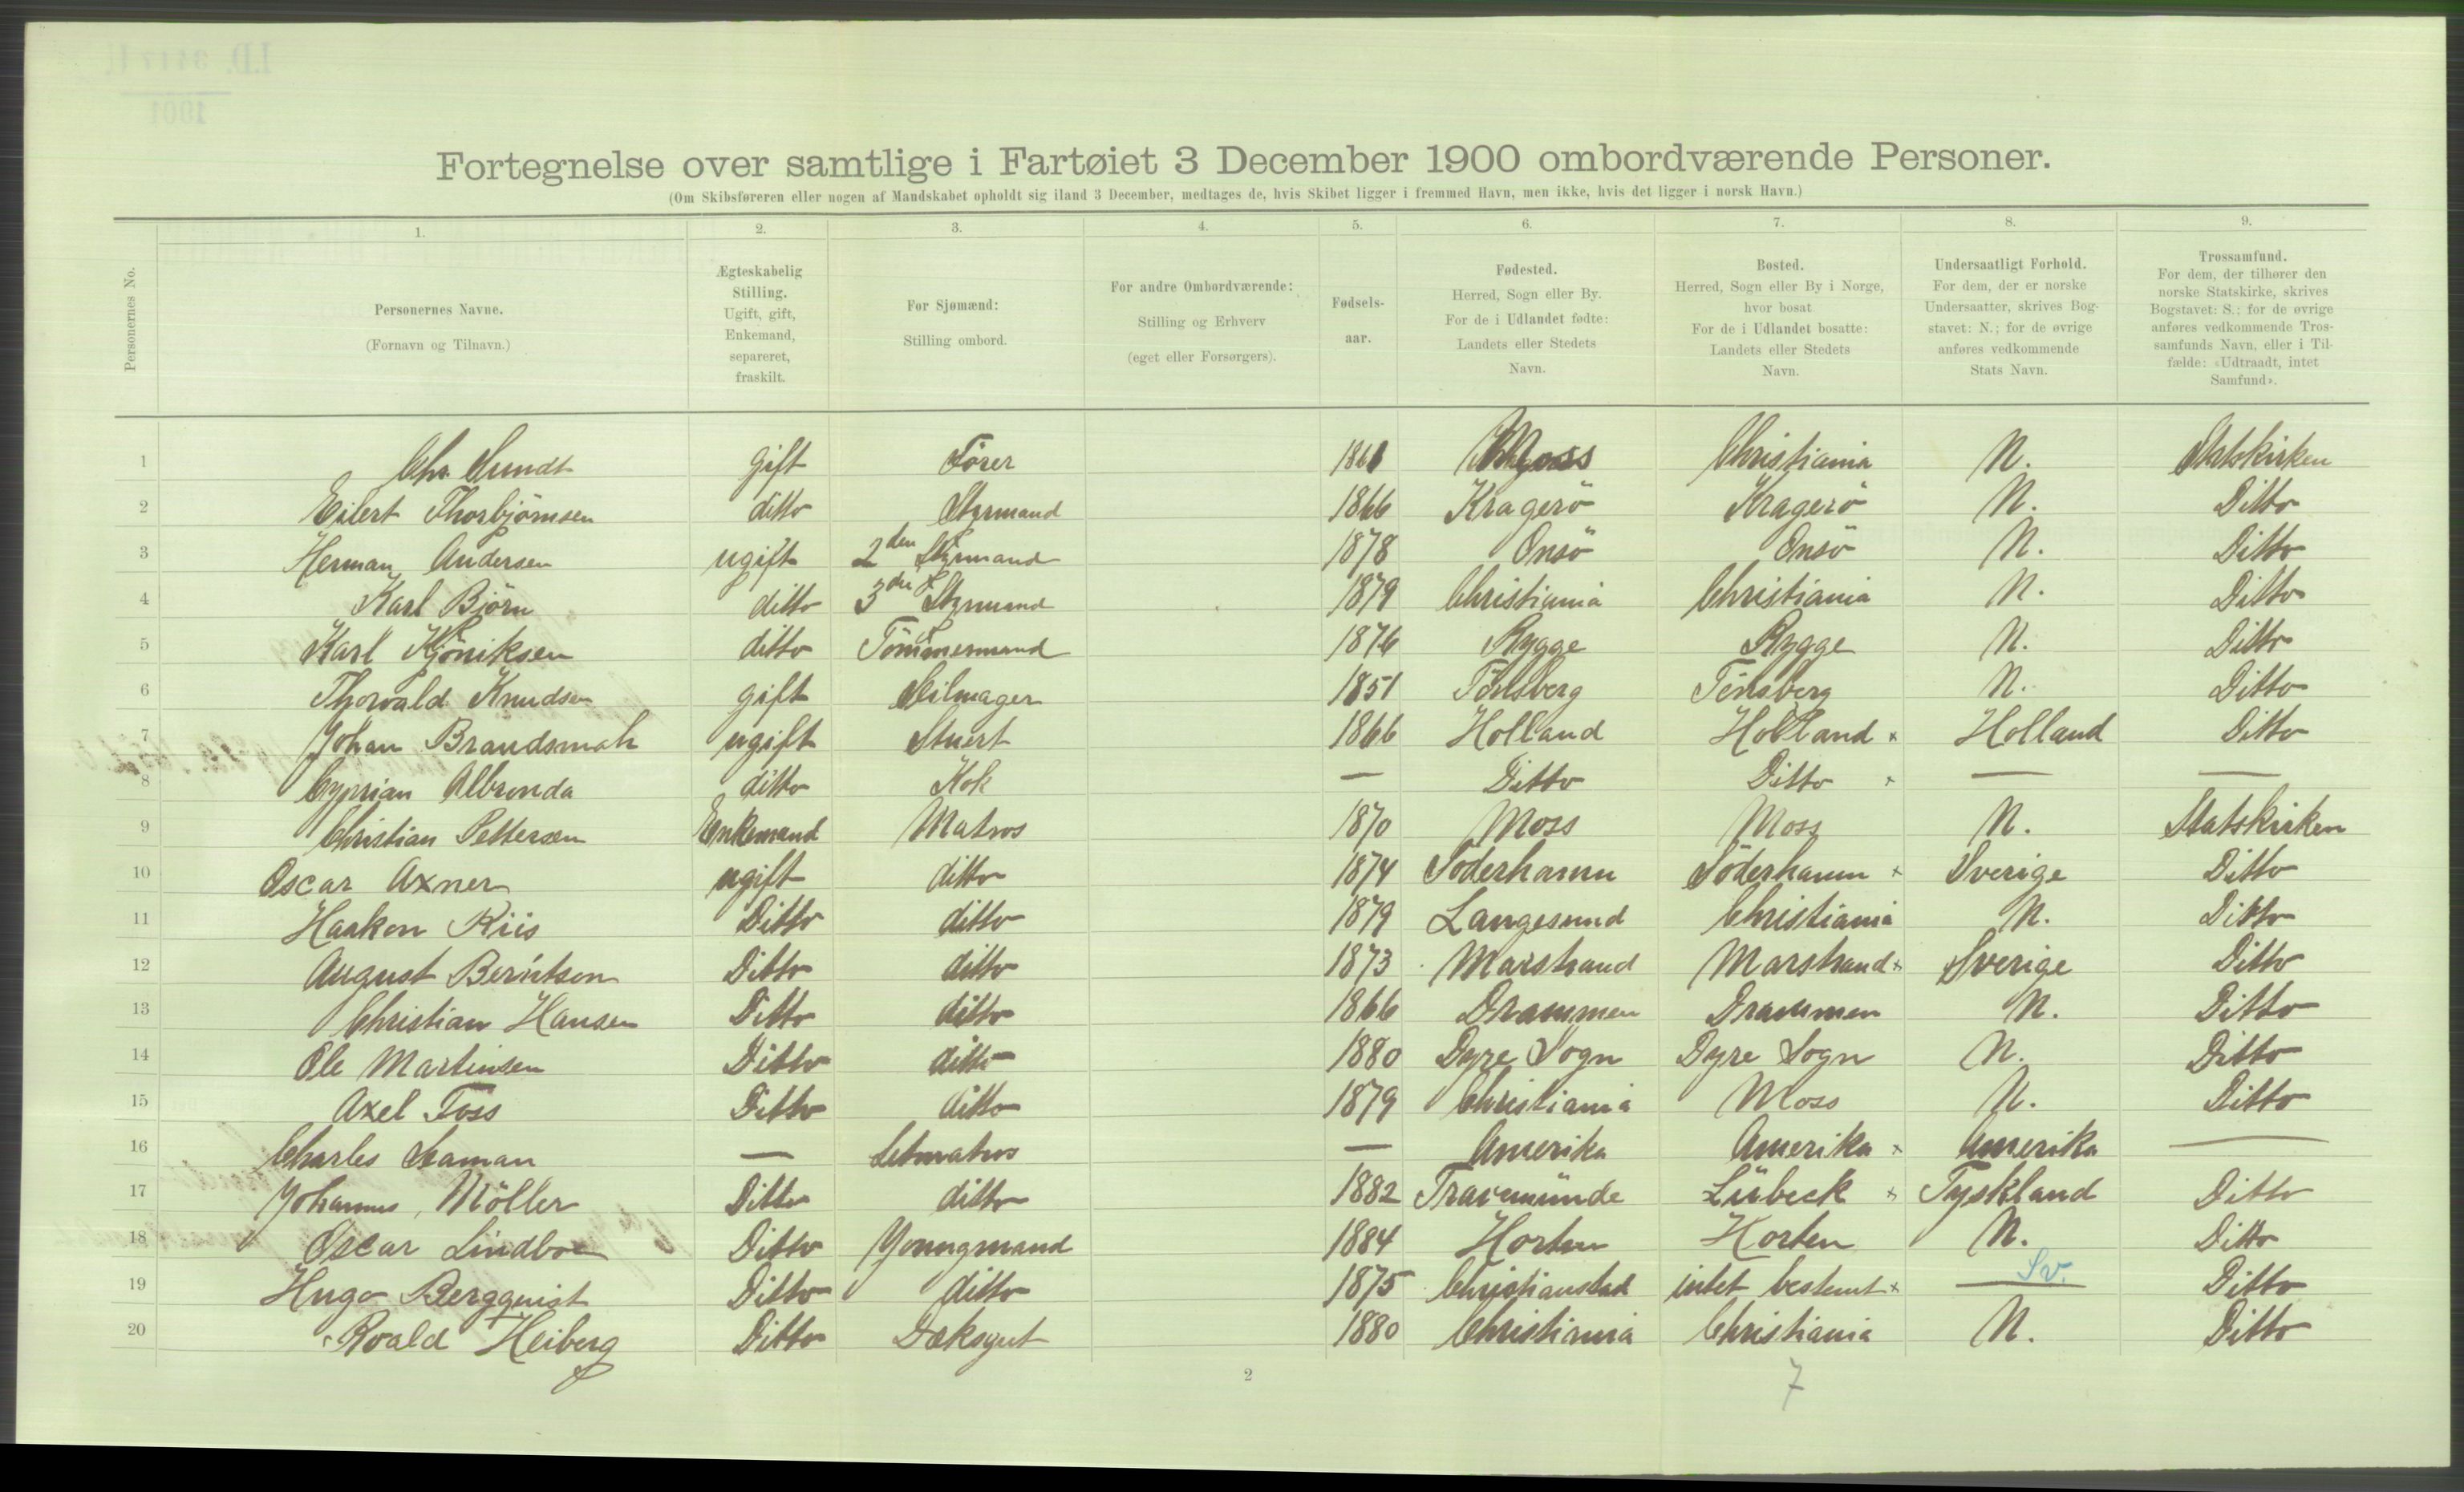 Fortegnelse over samtlige i Fartøiet 3 December 1900 ombordværende Personer.
(Om Skibsføreren eller nogen af Mandskabet opholdt sig iland 3 December, medtages de, hvis Skibet ligger i fremmed Havn, men ikke, hvis det ligger i norsk Havn.)
Personernes No.
1. 2. 3. 4. 5. 6. 7. 8. 9.
Personernes Navne.
(Fornavn og Tilnavn.)
Ægteskabelig
Stilling.
Ugift, gift,
Enkemand,
separeret,
fraskilt.
For Sjømænd:
Stilling ombord.
For andre Ombordværende:
Stilling og Erhverv
(eget eller Forsørgers).
Fødsels-
aar.
Fødested.
Herred, Sogn eller By.
For de i Udlandet fødte:
Landets eller Stedets
Navn.
Bosted.
Herred, Sogn eller By i Norge,
hvor bosat
For de i Udlandet bosatte:
Landets eller Stedets
Navn.
Undersaatligt Forhold.
For dem, der er norske
Undersaatter, skrives Bog-
stavet: N.; for de øvrige
anføres vedkommende
Stats Navn.
Trossamfund.
For dem, der tilhører den
norske Statskirke, skrives
Bogstavet: S.; for de øvrige
anføres vedkommende Tros-
samfunds Navn, eller i Til-
fælde: «Udtraadt, intet
Samfund».
1 Chr. Sundt gift Förer 1861 Moss Christiania N. Statskirken
2 Eilert Thorbjörnsen ditto Styrmand 1866 Kragerö Kragerö N. Ditto
3 Herman Andersen ugift 2den Styrmand 1878 Onsö Onsö N. Ditto
4 Karl Björn ditto 3die Styrmand 1879 Christiania Christiania N. Ditto
5 Karl Kjöniksen ditto Tömmermand 1876 Rygge Rygge N. Ditto
6 Thorvald Knudsen gift Seilmager 1851 Tönsberg Tönsberg N. Ditto
7 Johan Brandsmah ugift Stuert 1866 Holland Holland × Holland Ditto
8 Cyprian Albronda ditto Kok — Ditto Ditto × — —
9 Christian Pettersen Enkemand Matros 1870 Moss Moss N. Statskirken
10 Oscar Axner ugift ditto 1874 Söderhamn Söderhamn × Sverige Ditto
11 Haakon Riis Ditto ditto 1879 Langesund Christiania N. Ditto
12 August Berntsen Ditto ditto 1873 Marstrand Marstrand × Sverige Ditto
13 Christian Hansen Ditto ditto 1866 Drammen Drammen N. Ditto
14 Ole Martinsen Ditto ditto 1880 Dyre Sogn Dyre Sogn N. Ditto
15 Axel Foss Ditto ditto 1879 Christiania Moss N. Ditto
16 Charles Seaman — Letmatros — Amerika Amerika × Amerika —
17 Johannes Möller Ditto ditto 1882 Travemünde Lübeck × Tyskland Ditto
18 Oscar Lindboe Ditto Youngmand 1884 Horten Horten N. Ditto
19 Hugo Bergquist Ditto ditto 1875 Christianstad intet bestemt × — Sv. Ditto
20 Roald Heiberg Ditto Dæksgut 1880 Christiania Christiania N. Ditto
2
7